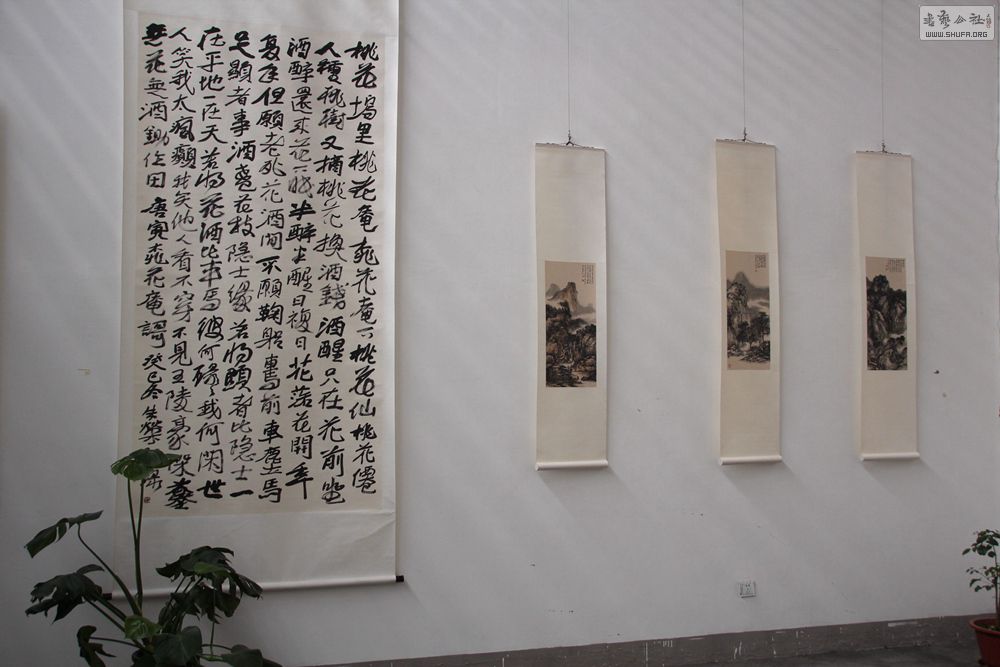 桃花塢里桃花庵桃花庵下桃花仙桃花僊
人種桃樹又摘桃花換酒錢酒醒只在花前坐
酒醉還来花下眠半醉半醒日複日花落花開年
復年但願老死花酒間不願鞠躬車馬前車塵馬
足顯者事酒盞花枝隐士緣若将顯者比隐士一
在平地一在天若将花酒比車馬彼何碌々我何閑世
人笑我太瘋癲我笑他人看不穿不見五陵豪傑墓
無花無酒鋤作田 唐寅桃花庵調 癸巳冬
书艺公社
WWW.SHUFA.ORG